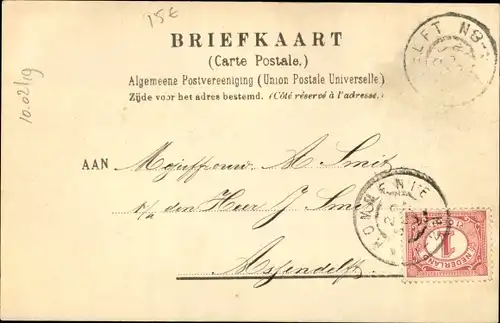 15€
BRIEFKAART
(Carte Postale.)
Algemeene Postvereeniging (Union Postale Universelle)
Zijde voor het adres bestemd. (Côté réservé à l'adresse.)
10.02/19
AAN Mejuffrouw M. Smit
p/a den Heer J. Smit
Assendelft
KROMMENIE
1
NEDERLAND